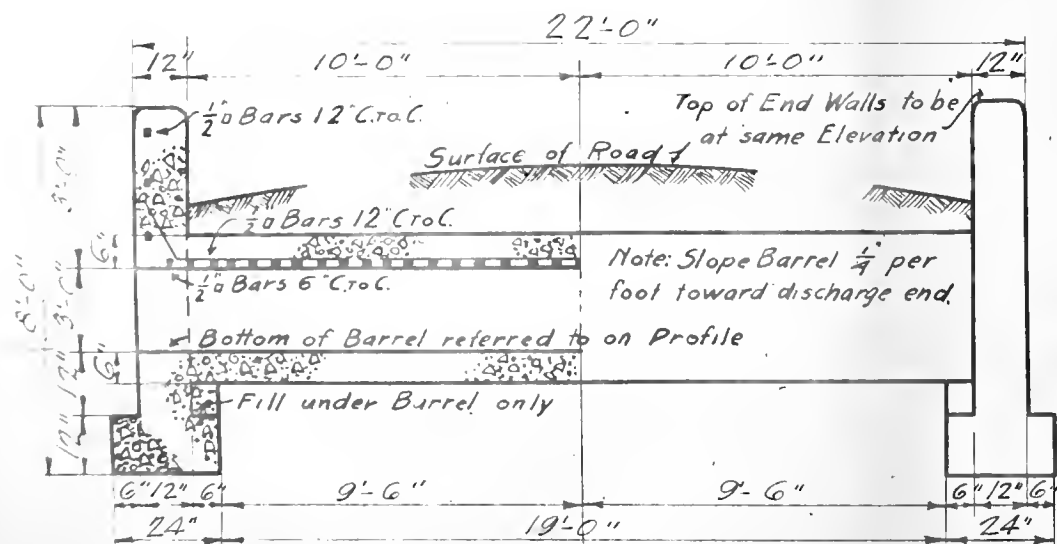 22'-0"
12" 10'-0" 10'-0" 12"
1/2"□ Bars 12" C.To C.
Top of End Walls to be
at same Elevation
Surface of Road
3'-0"
1/2"□ Bars 12" C To C.
6"
Note: Slope Barrel 1/4" per
foot toward discharge end.
1/2"□ Bars 6" C.To C.
8'-0"
3'-0"
Bottom of Barrel referred to on Profile
6"
12"
Fill under Barrel only
12"
6" 12" 6" 9'-6" 9'-6" 6" 12" 6"
24" 19'-0" 24"